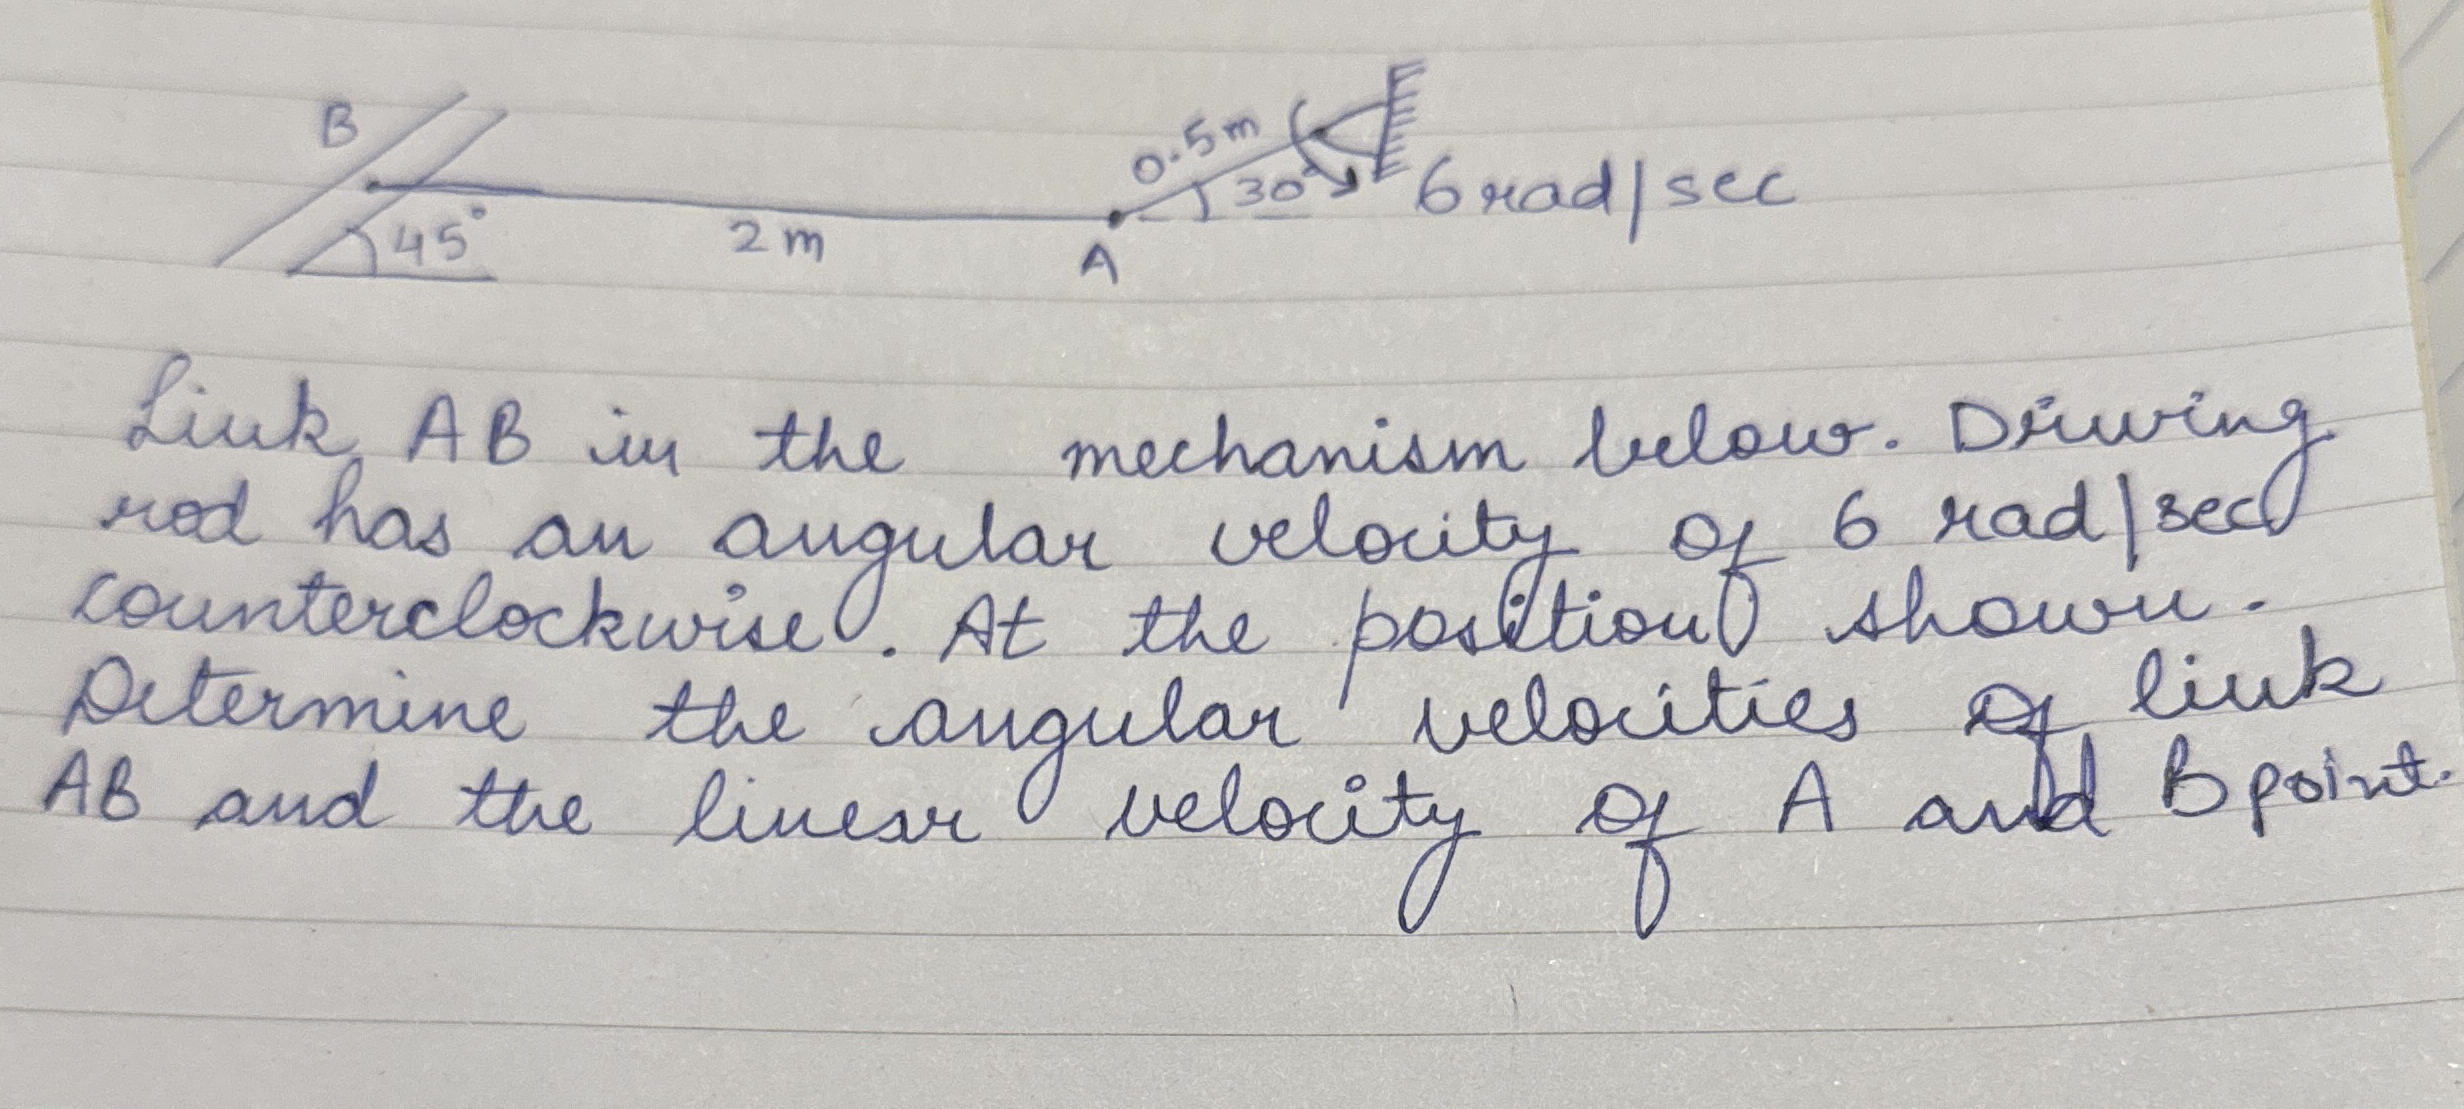 B
0.5m
30°
6 rad/sec
45°
2m
A
Link AB in the mechanism below. Driving
rod has an angular velocity of 6 rad/sec
counterclockwise. At the position shown.
Determine the angular velocities of link
AB and the linear velocity of A and B point.